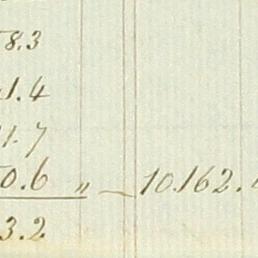 8.3
1.4
1.7
0.6 〃 — 10.162.
3.2